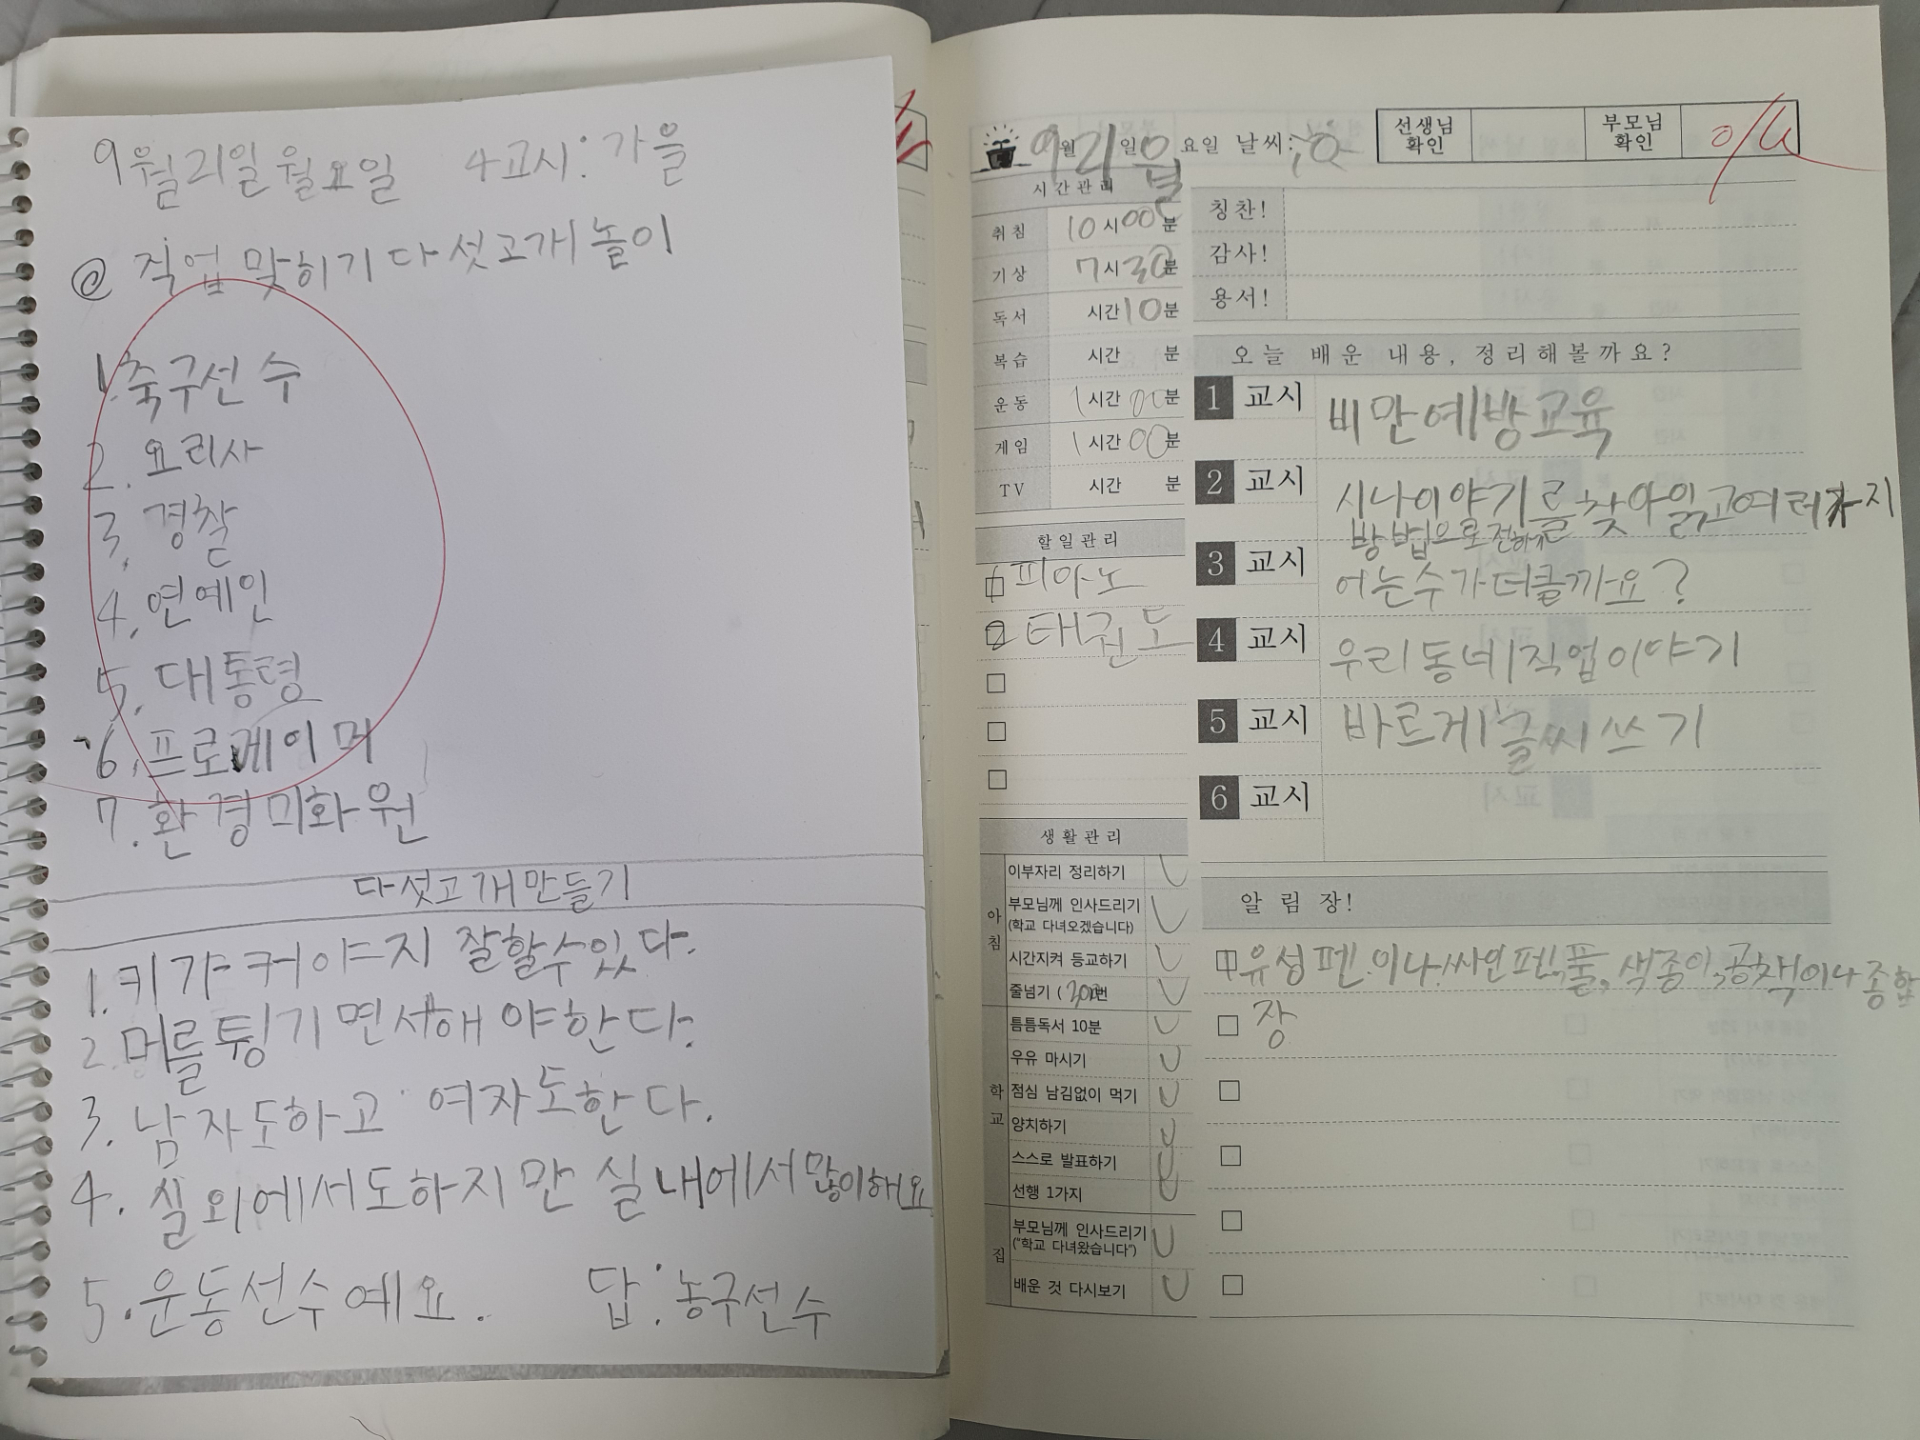 9월21일월요일 4교시: 가을
@ 직업 맞히기 다섯고개 놀이
1. 축구선수
2. 요리사
3. 경찰
4. 연예인
5. 대통령
6. 프로게이머
7. 환경미화원
다섯고개만들기
1. 키가커야지 잘할수있다.
2. 머를튕기면서해야한다.
3. 남자도하고 여자도한다.
4. 실외에서도하지만 실내에서많이해요
5. 운동선수예요. 답: 농구선수
9월 21일 월요일 날씨:
선생님 확인
부모님 확인
시간관리
취침 10시00분
기상 7시30분
독서 시간10분
복습 시간 분
운동 1시간00분
게임 1시간00분
TV 시간 분
할일관리
피아노
태권도
생활관리
아침
이부자리 정리하기
부모님께 인사드리기
(학교 다녀오겠습니다)
시간지켜 등교하기
줄넘기 ( 번
학교
틈틈독서 10분
우유 마시기
점심 남김없이 먹기
양치하기
스스로 발표하기
선행 1가지
집
부모님께 인사드리기
("학교 다녀왔습니다")
배운 것 다시보기
칭찬!
감사!
용서!
오늘 배운 내용, 정리해볼까요?
1 교시 비만예방교육
2 교시 시나이야기를찾아읽고여러가지
방법으로
3 교시 어는수가더클까요?
4 교시 우리동네직업이야기
5 교시 바르게글씨쓰기
6 교시
알림장!
유성펜이나싸인펜,풀,색종이,공책이나종합
장